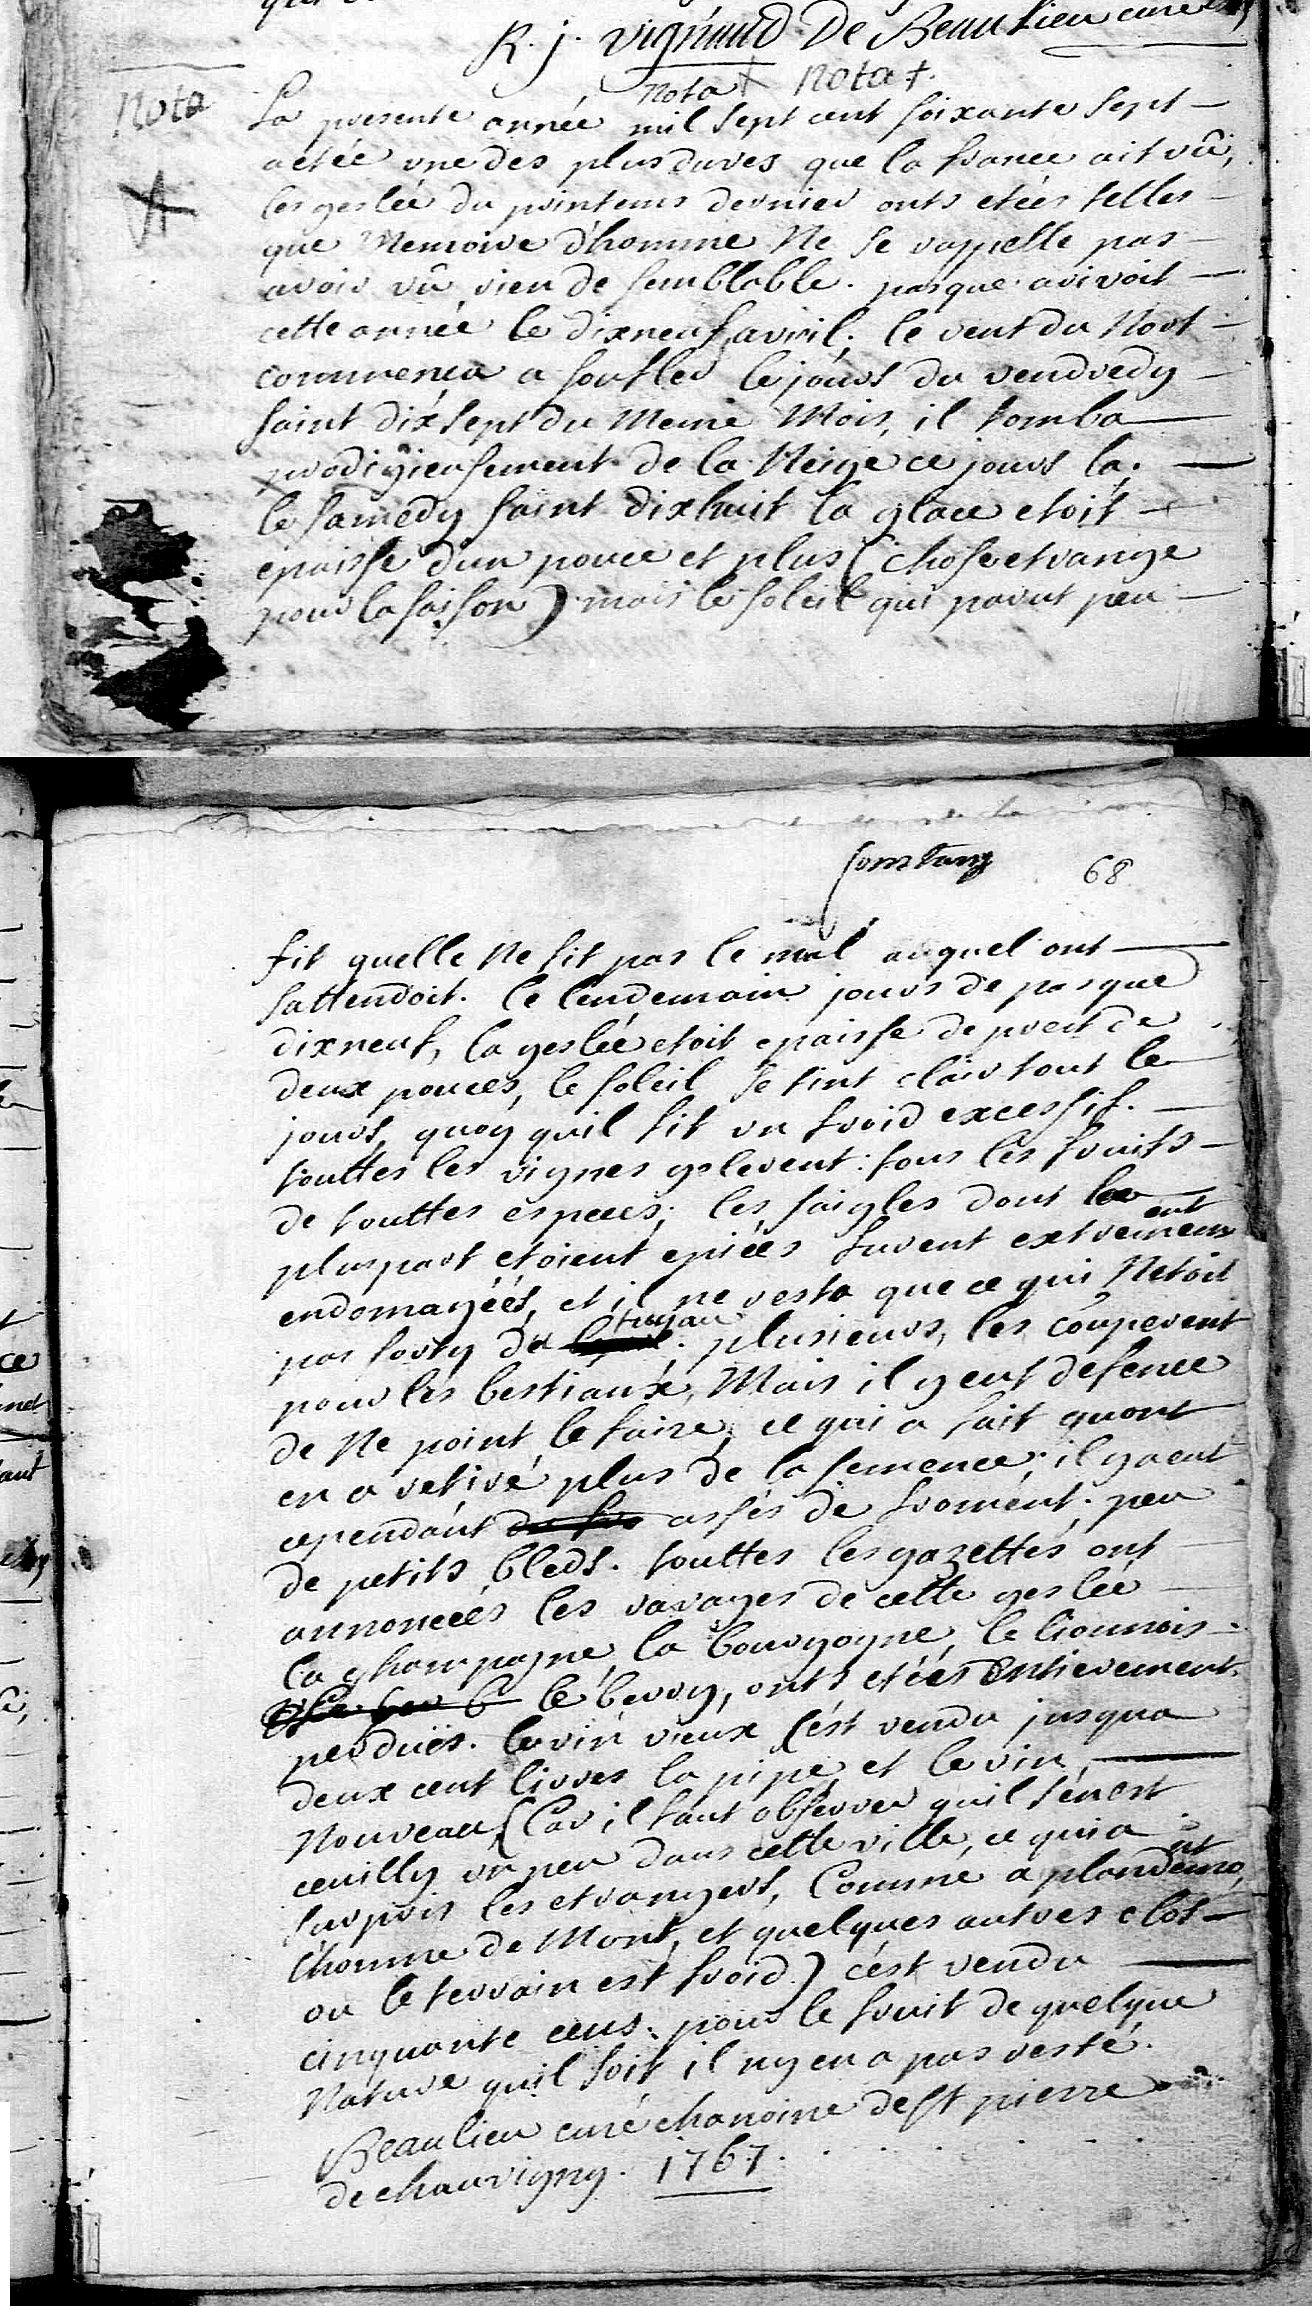 R. j. vignaud De Beaulieu curé
Nota + Nota +.
Nota
La presente année mil sept cent soixante sept
aetée une des plus dures que la france ait vû,
les geslée du printems dernier onts etées telles
que Memoire d'homme Ne se rappelle pas
avoir vû rien de semblable. pasque arivoit
cette année le dixneuf avril; le vent du Nort
commença a soufler le jours du vendredy
saint dixsept du Meme Mois, il tomba
prodigieusement de la Neige ce jours la.
le samedy saint dixhuit la glace etoit
epaisse d'un pouce et plus (chose etrange
pour la saison) mais le soleil qui parut peu
68
fit quelle Ne fit pas le mal auquel ont
sattendoit. le lendemain jours de pasque
dixneuf, la geslée etoit epaisse de preit de
deux pouces, le soleil se tint clair tout le
jours, quoy quil fit un froid excessif.
touttes les vignes gelerent: tous les fruits
de touttes especes; les saigles dont la
pluspart etoient epiées furent extremement
endomagéés, et il ne resta que ce qui Netoit
pas sorty du tuyau. plusieurs, les couperent
pour les bestiaux, Mais il y eut defence
de Ne point le faire, ce qui a fait quont
en a retiré plus de la semence; il y aeut
cependant assés de froment; peu
de petits bleds. touttes les gazettes ont
annoncées les ravages de cette geslée
la champagne, la bourgogne, le lionnois
le berry, onts etées Entierement
perduës. le vin vieux s'est vendu jusqua
deux cent livres la pipe, et le vin,
Nouveau (Car il faut observer quil s'en est
ceuilly un peu dans cette ville, ce qui a
surpris les etrangers, Comme a plandemont,
lhomme de Mont, et quelques autres clos
ou le terrain est froid) cést vendu
cinquante ceus. pour le fruit de quelque
Nature quil soit il ny en a pas resté.
Beaulieu curé chanoine de St pierre
de chauvigny. 1767.